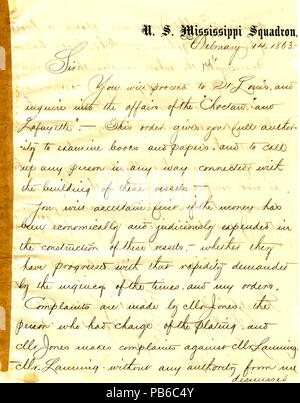 U. S. Mississippi Squadron,
February 14, 1863
Sir
You will proceed to St Louis, and
inquire into the affairs of the "Choctaw," and
Lafayette" — This order gives you full author-
ity to examine books and papers, and to call
up any person in any way connected with
the building of these vessels —
You will ascertain first if the money has
been economically and judiciously expended in
the construction of these vessels — whether they
have progressed with that rapidity demanded
by the urgency of the times, and my orders.
Complaints are made by Mr Jones, the
person who had charge of the plating, and
Mr Jones makes complaints against Mr Lanning.
Mr. Lanning without any authority from me
dismissed
alamy
Image ID: PB6C4Y
www.alamy.com